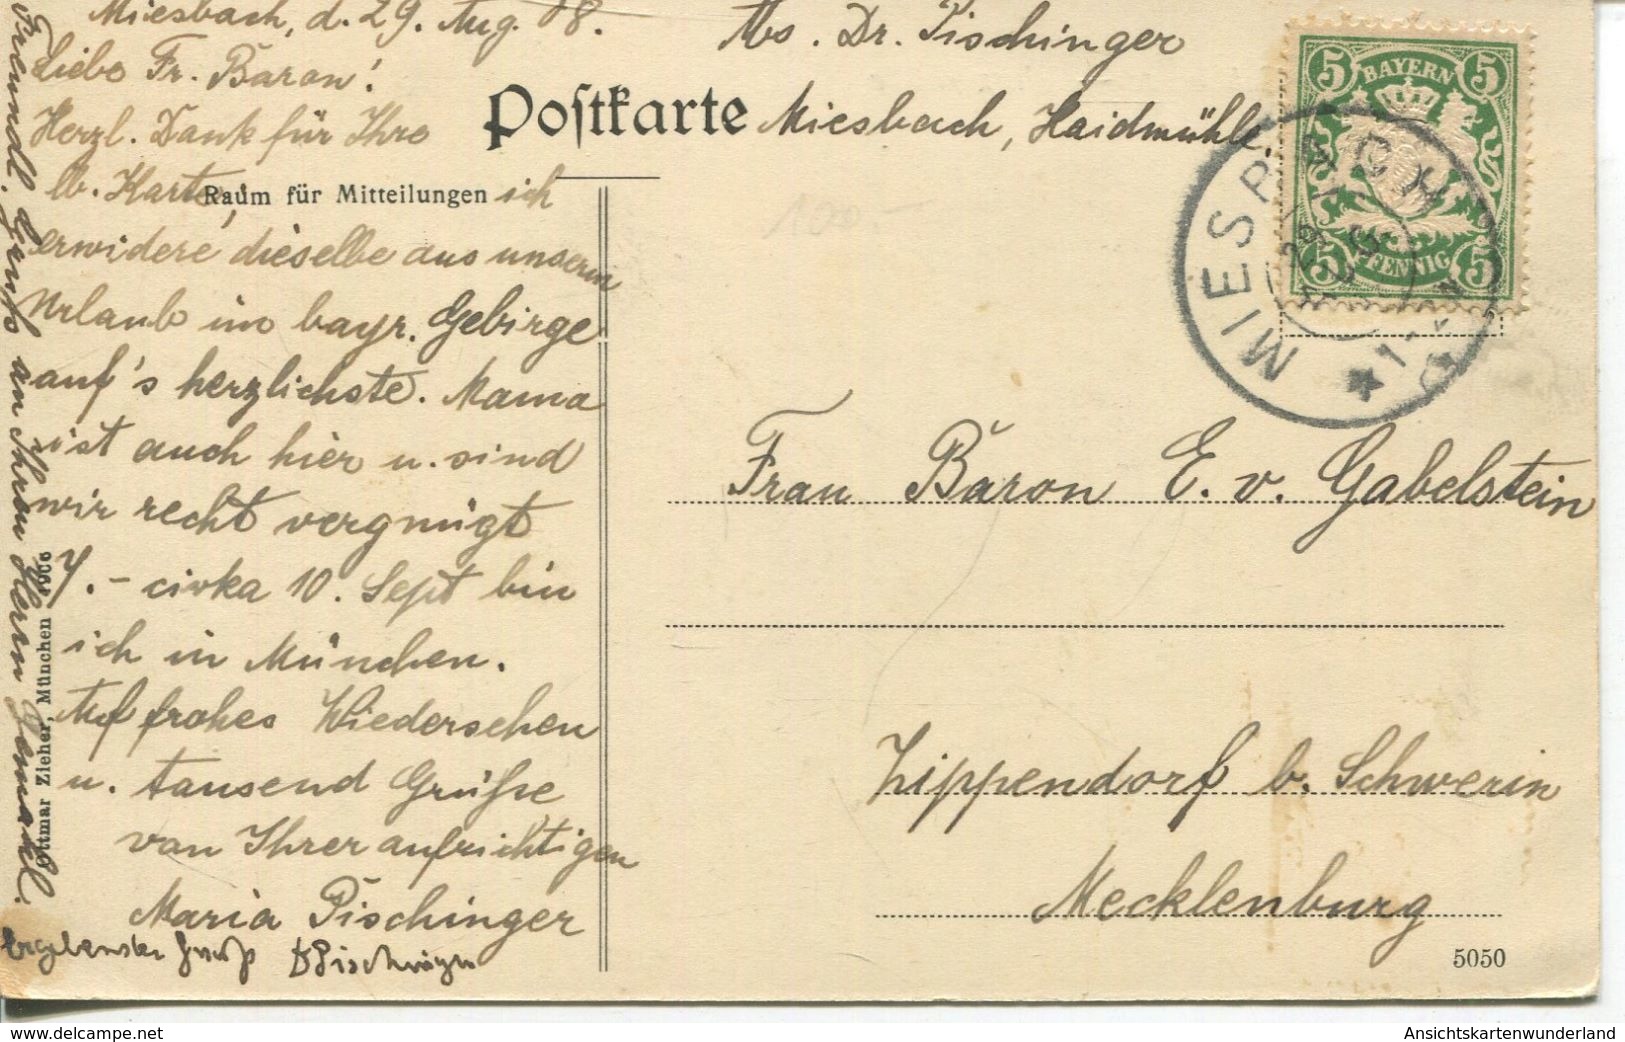 Miesbach, d. 29. Aug. 08.
Liebe Fr. Baron!
Herzl. Dank für Ihre
lb. Karte, ich
erwidere dieselbe aus unserm
Urlaub im bayr. Gebirge
auf's herzlichste. Mama
ist auch hier u. sind
wir recht vergnügt
cirka 10. Sept bin
ich in München.
Auf frohes Wiedersehen
u. tausend Grüße
von Ihrer aufrichtigen
Maria Pischinger
Ergebensten Gruß Pischinger
Freundl. Gruß an Ihren Herrn Gemahl.
Abs. Dr. Pischinger
Miesbach, Haidmühle.
Postkarte
Raum für Mitteilungen
Ottmar Zieher, München 1906
100.-
5 BAYERN 5
5 PFENNIG 5
MIESBACH
Frau Baron E. v. Gabelstein
Zippendorf b. Schwerin
Mecklenburg
5050
www.delcampe.net
Ansichtskartenwunderland